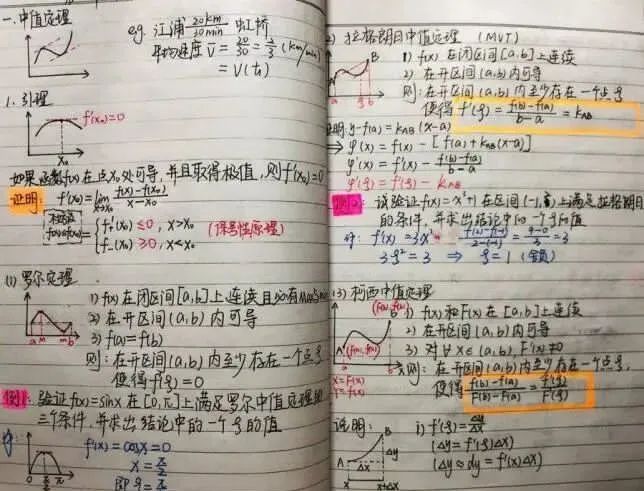 一.中值定理
eg. 江浦 20km/30min 虹桥
平均速度 v̄ = 20/30 = 2/3 (km/min)
= V(t₀)
1. 引理
f'(x₀)=0
x₀
如果函数f(x)在点x₀处可导,并且取得极值,则f'(x₀)=0
证明: f'(x₀) = lim x→x₀ f(x)-f(x₀)/x-x₀
= { f₊'(x₀) ≤0, x>x₀
f₋'(x₀) ≥0, x<x₀
(保号性原理)
(1) 罗尔定理
1) f(x) 在闭区间[a,b]上连续
2) 在开区间(a,b)内可导
3) f(a)=f(b)
则:在开区间(a,b)内至少存在一个点ξ
使得f'(ξ)=0
a M m b
例1: 验证f(x)=sinx 在[0,π]上满足罗尔中值定理的
三个条件,并求出结论中的一个ξ的值
f'(x)=cosx=0
x=π/2
即ξ=π/2
0 π/2 π
2) 拉格朗日中值定理 (MVT)
1) f(x) 在闭区间[a,b]上连续
2) 在开区间(a,b)内可导
则:在开区间(a,b)内至少存在一个点ξ
使得 f'(ξ)= f(b)-f(a)/b-a = k_AB
A B
a ξ b
证明: y-f(a)=k_AB(x-a)
⇒ φ(x) = f(x) - [f(a)+k_AB(x-a)]
φ'(x) = f'(x) - f(b)-f(a)/b-a
φ'(ξ) = f'(ξ) - k_AB
例2: 试验证f(x)=x³+1在区间(-1,2)上满足拉格朗日
的条件,并求出结论中的一个ξ的值
f'(x) = 3x² f(2)-f(-1)/2-(-1) = 9-0/3 = 3
3ξ²=3 ⇒ ξ=1
(3) 柯西中值定理
1) f(x) 和F(x) 在[a,b]上连续
2) 在开区间(a,b)内可导
3) 对∀x∈(a,b), F'(x)≠0
则:在开区间(a,b)内至少存在一个点ξ,
使得 f(b)-f(a)/F(b)-F(a) = f'(ξ)/F'(ξ)
X=F(x)
Y=f(x)
说明:
i) f'(ξ)= Δy/Δx
(Δy=f'(ξ)Δx)
(Δy≈dy=f'(x)Δx)
A B Δy
Δx
x x+Δx